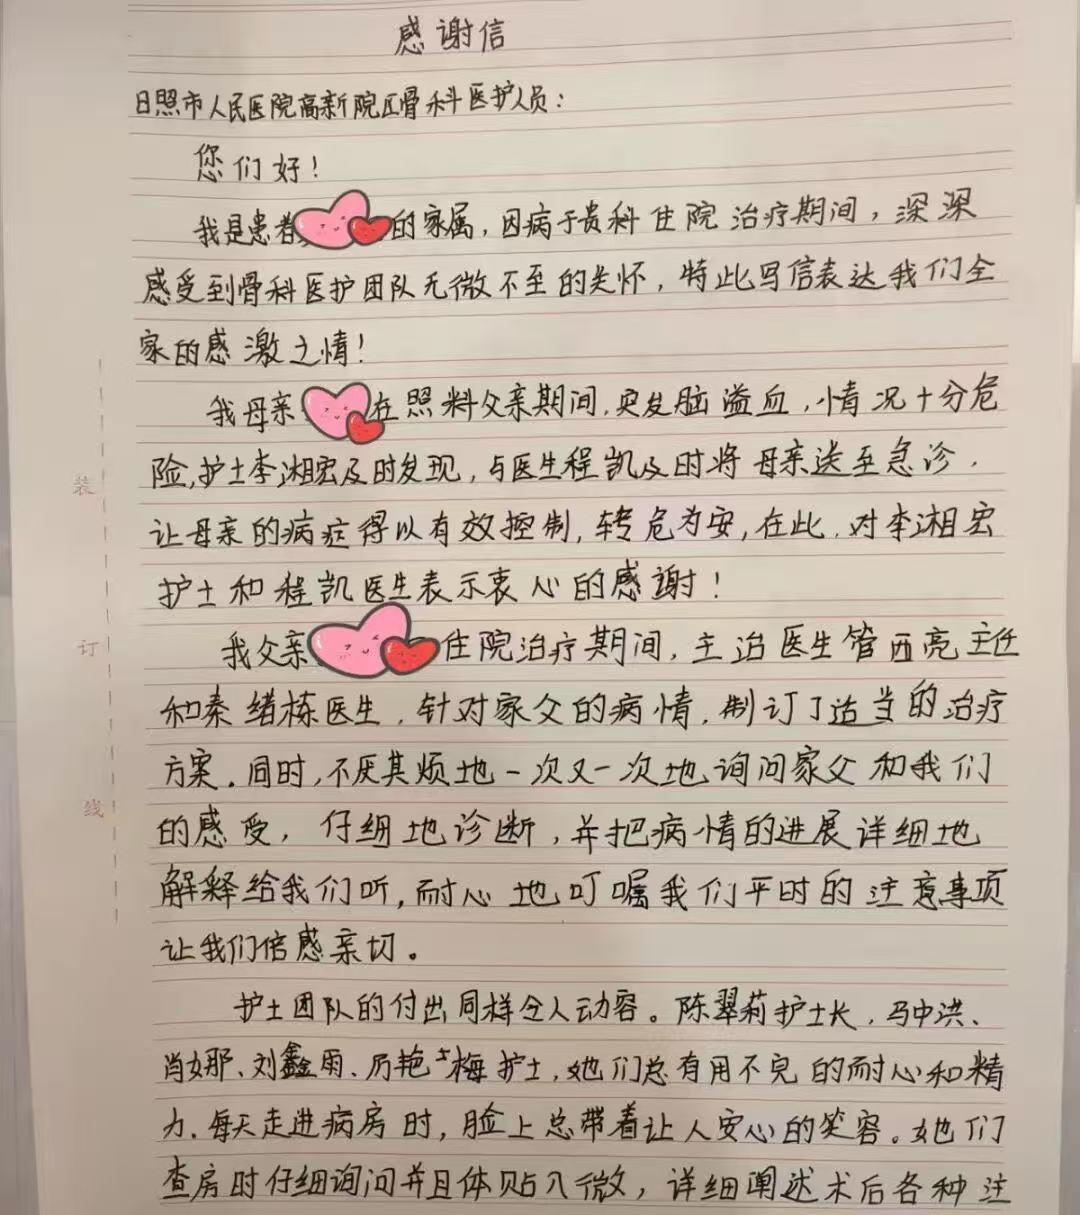 感谢信
日照市人民医院高新院区骨科医护人员：
您们好！
我是患者的家属，因病于贵科住院治疗期间，深深
感受到骨科医护团队无微不至的关怀，特此写信表达我们全
家的感激之情！
我母亲在照料父亲期间，突发脑溢血，情况十分危
险，护士李湘宏及时发现，与医生程凯及时将母亲送至急诊，
让母亲的病症得以有效控制，转危为安，在此，对李湘宏
护士和程凯医生表示衷心的感谢！
我父亲住院治疗期间，主治医生管西亮主任
和秦绪栋医生，针对家父的病情，制订了适当的治疗
方案。同时，不厌其烦地一次又一次地询问家父和我们
的感受，仔细地诊断，并把病情的进展详细地
解释给我们听，耐心地叮嘱我们平时的注意事项
让我们倍感亲切。
护士团队的付出同样令人动容。陈翠莉护士长，马中洪、
肖娜、刘鑫雨、厉艳梅护士，她们总有用不完的耐心和精
力、每天走进病房时，脸上总带着让人安心的笑容。她们
查房时仔细询问并且体贴入微，详细阐述术后各种注
装
订
线